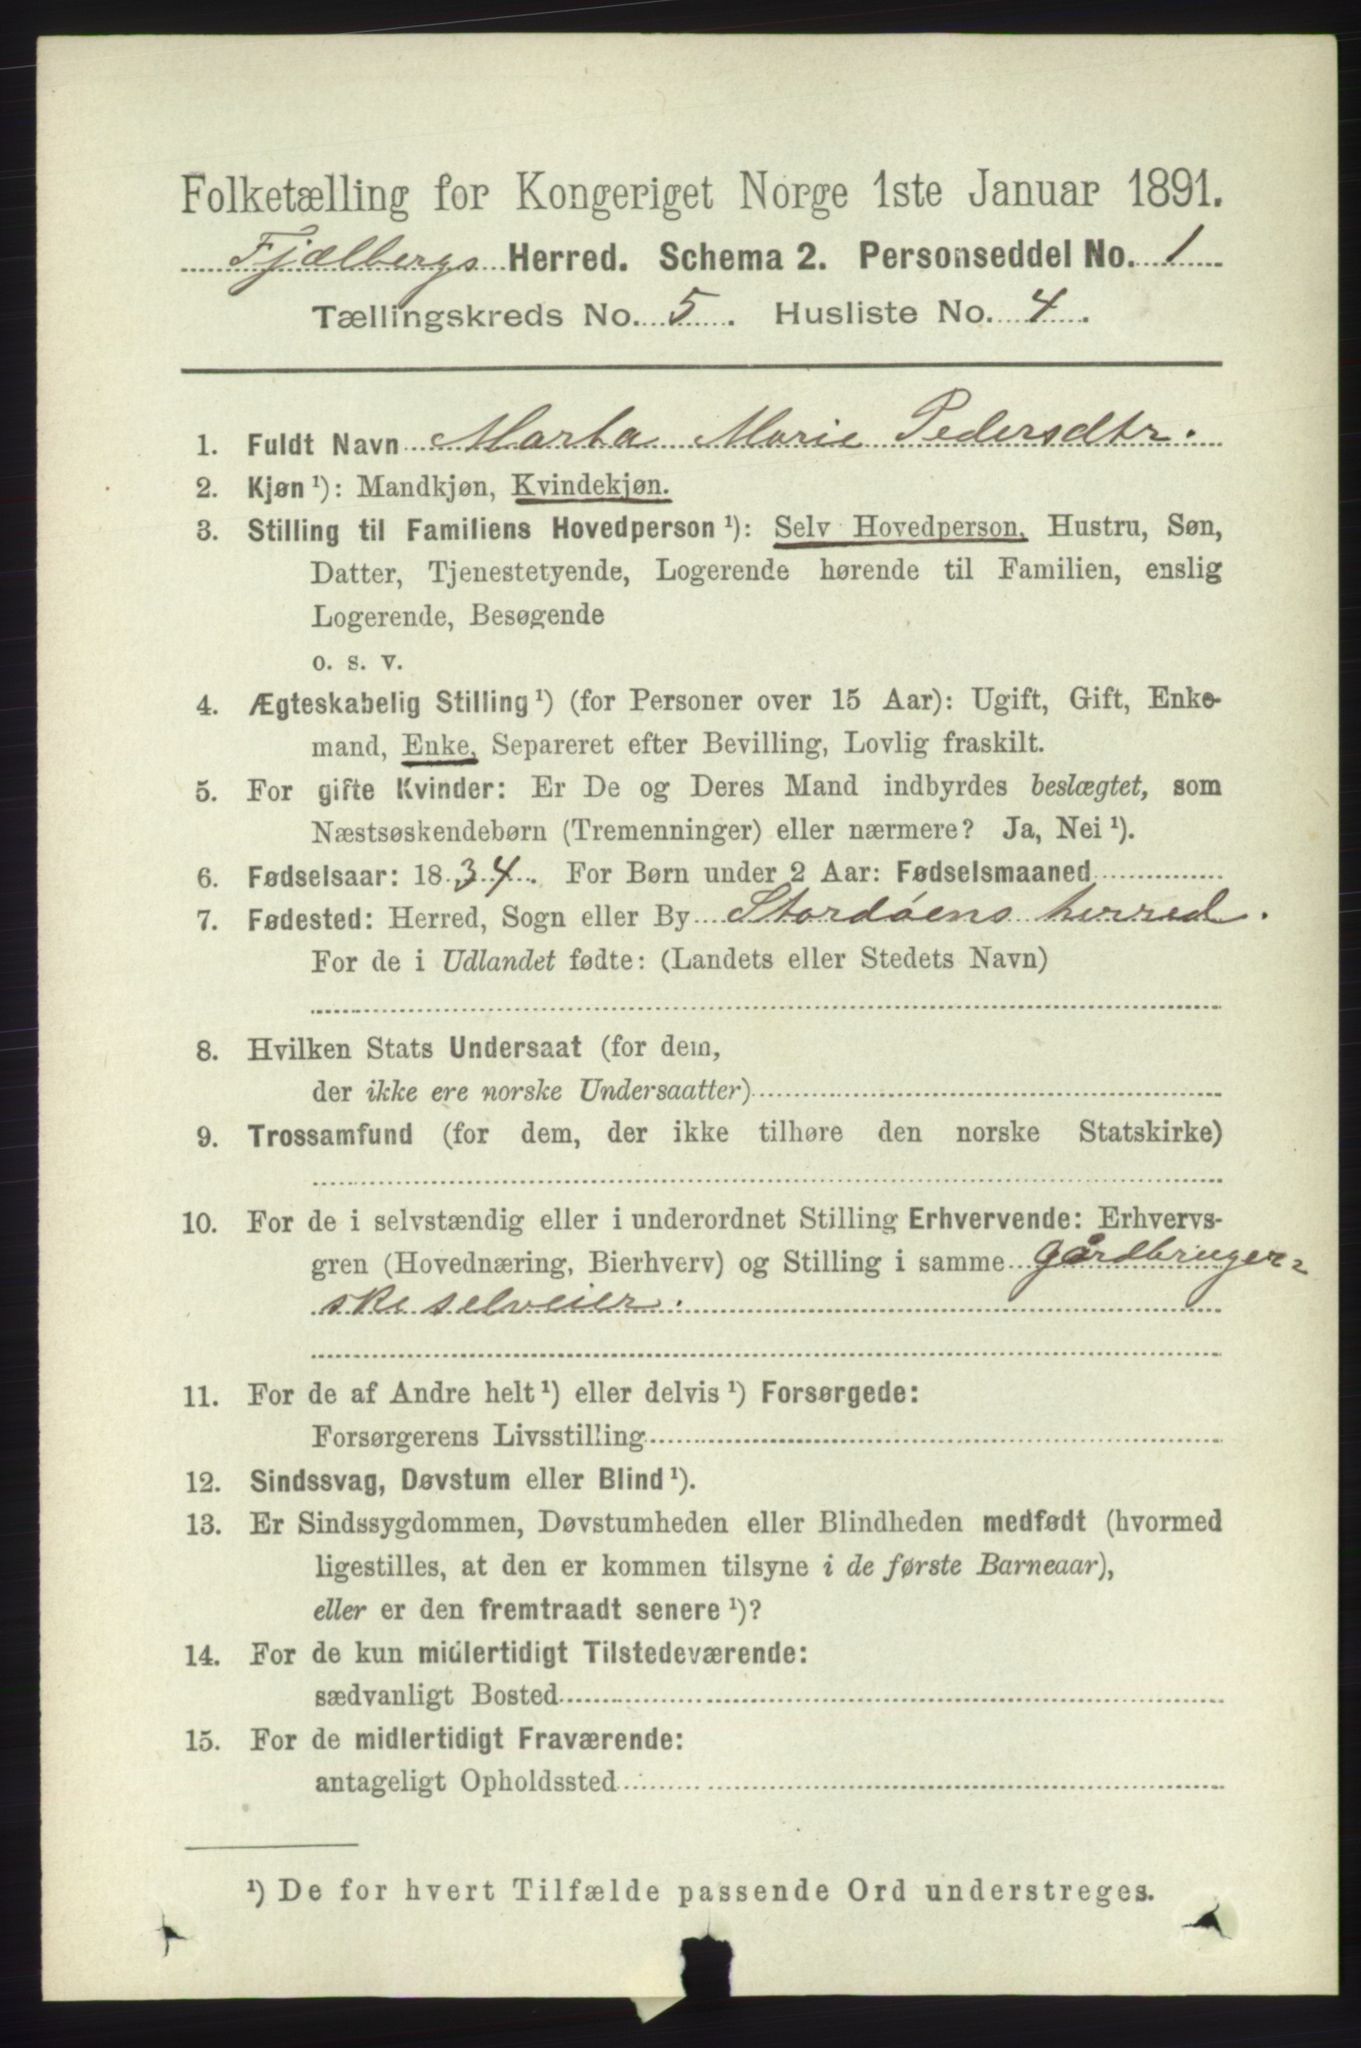 Folketælling for Kongeriget Norge 1ste Januar 1891.
Fjælbergs Herred. Schema 2. Personseddel No. 1
Tællingskreds No. 5. Husliste No. 4.
1. Fuldt Navn Marta Marie Pedersdtr.
2. Kjøn ¹): Mandkjøn, Kvindekjøn.
3. Stilling til Familiens Hovedperson ¹): Selv Hovedperson, Hustru, Søn,
Datter, Tjenestetyende, Logerende hørende til Familien, enslig
Logerende, Besøgende
o. s. v.
4. Ægteskabelig Stilling ¹) (for Personer over 15 Aar): Ugift, Gift, Enke-
mand, Enke, Separeret efter Bevilling, Lovlig fraskilt.
5. For gifte Kvinder: Er De og Deres Mand indbyrdes beslægtet, som
Næstsøskendebørn (Tremenninger) eller nærmere? Ja, Nei ¹).
6. Fødselsaar: 1834. For Børn under 2 Aar: Fødselsmaaned
7. Fødested: Herred, Sogn eller By Stordøens herred.
For de i Udlandet fødte: (Landets eller Stedets Navn)
8. Hvilken Stats Undersaat (for dem,
der ikke ere norske Undersaatter)
9. Trossamfund (for dem, der ikke tilhøre den norske Statskirke)
10. For de i selvstændig eller i underordnet Stilling Erhvervende: Erhvervs-
gren (Hovednæring, Bierhverv) og Stilling i samme Gårdbruger=
ske selveier.
11. For de af Andre helt ¹) eller delvis ¹) Forsørgede:
Forsørgerens Livsstilling
12. Sindssvag, Døvstum eller Blind ¹).
13. Er Sindssygdommen, Døvstumheden eller Blindheden medfødt (hvormed
ligestilles, at den er kommen tilsyne i de første Barneaar),
eller er den fremtraadt senere ¹)?
14. For de kun midlertidigt Tilstedeværende:
sædvanligt Bosted
15. For de midlertidigt Fraværende:
antageligt Opholdssted
¹) De for hvert Tilfælde passende Ord understreges.